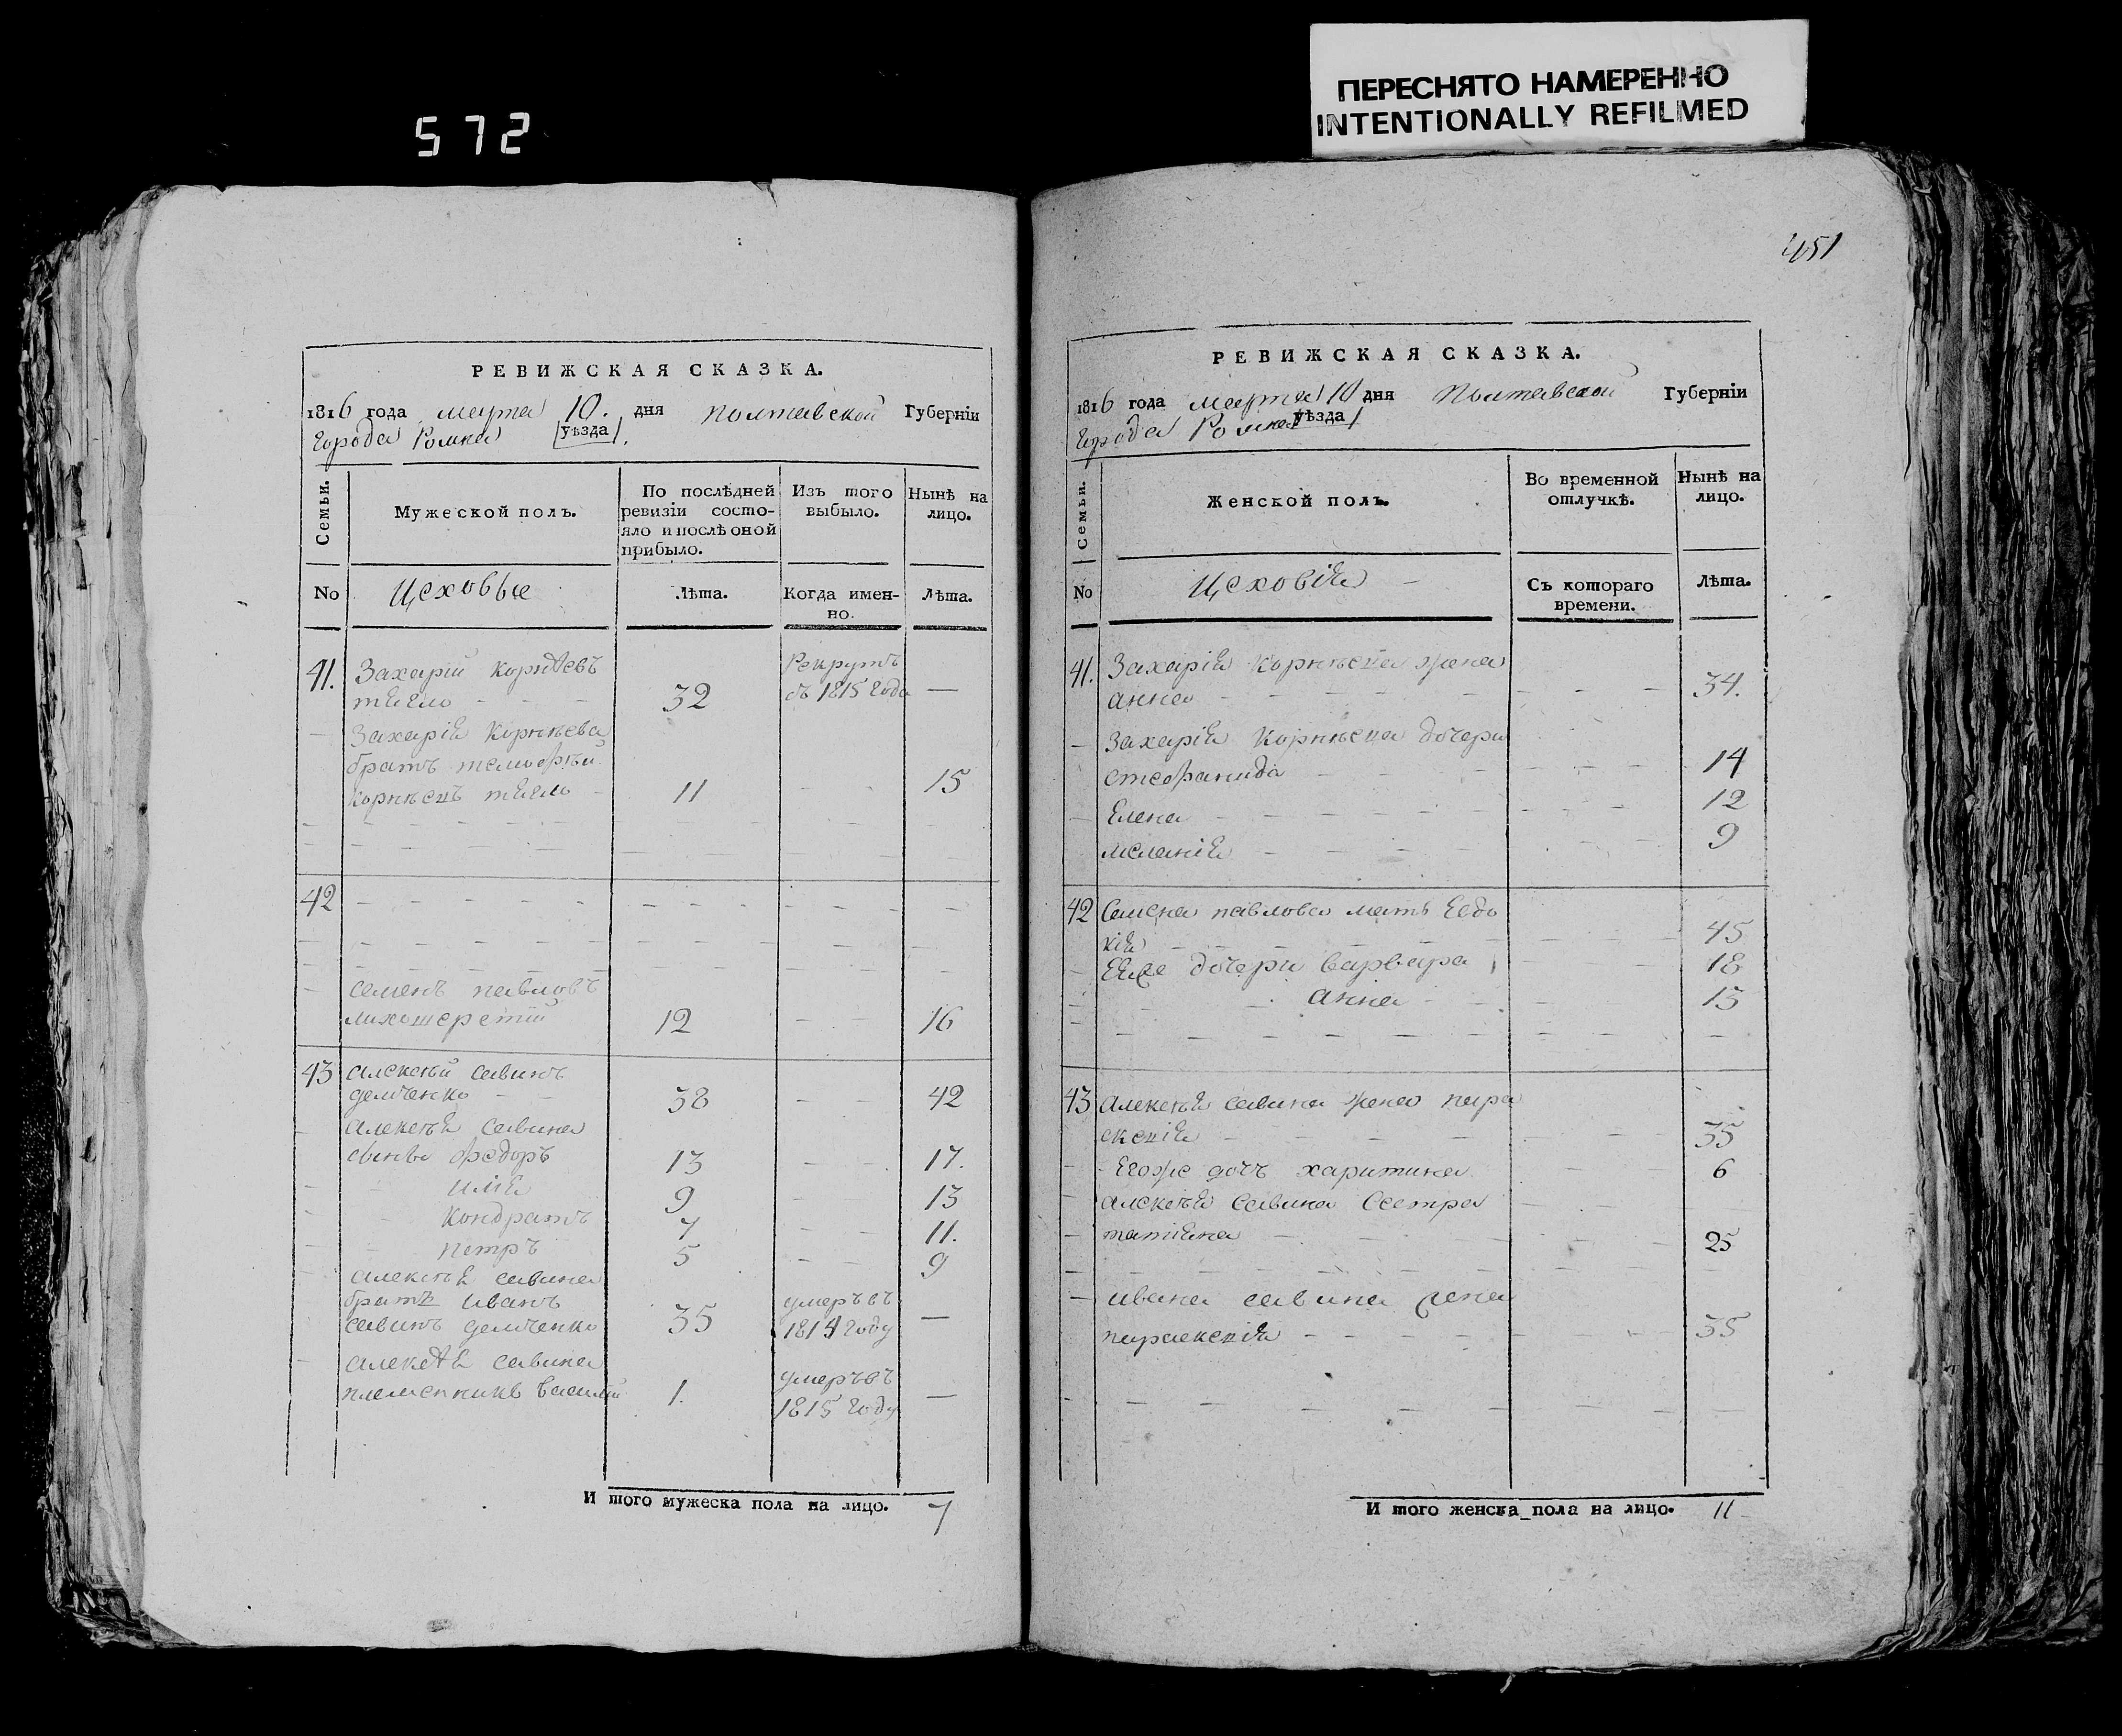 572
ПЕРЕСНЯТО НАМЕРЕННО
INTENTIONALLY REFILMED
РЕВИЖСКАЯ СКАЗКА.
1816 года марта 10. дня Полтавской Губерніи
Города Ромна уѣзда
Семьи.
Мужеской полъ.
По послѣдней
ревизіи состо-
яло и послѣ оной
прибыло.
Изъ того
выбыло.
Нынѣ на
лицо.
No Цеховые
Лѣта.
Когда имен-
но.
Лѣта.
41. Захарій Корнѣевъ Рекрутъ
32 съ 1815 года —
Захарія Корнѣева
братъ
11 15
42
Семенъ павловъ
12 16
43 алексѣй савинъ
демченко 38 42
алексѣя савина
сыновья федоръ 13 17.
илія 9 13
кондратъ 7 11.
петръ 5 9
алексѣя савина
братъ иванъ умеръ въ
савинъ демченко 35 1814 году —
алексѣя савина умеръ въ
племенникъ василій 1. 1815 году —
И того мужеска пола на лицо. 7
451
РЕВИЖСКАЯ СКАЗКА.
1816 года марта 10 дня Полтавской Губерніи
Города Ромна уѣзда
Семьи.
Женской полъ.
Во временной
отлучкѣ.
Нынѣ на
лицо.
No Цеховія
Съ котораго
времени.
Лѣта.
41. Захарія Корнѣева жена
анна 34.
Захарія Корнѣева дочери
стефанида 14
Елена 12
меланія 9
42 Семена павлова мать Евдо
кія 45
Ея же дочери варвара 18
анна 15
43 алексѣя савина жена пара
скевія 35
Егоже дочь харитина 6
алексѣя савина сестра
татіяна 25
ивана савина жена
параскевія 35
И того женска пола на лицо. 11